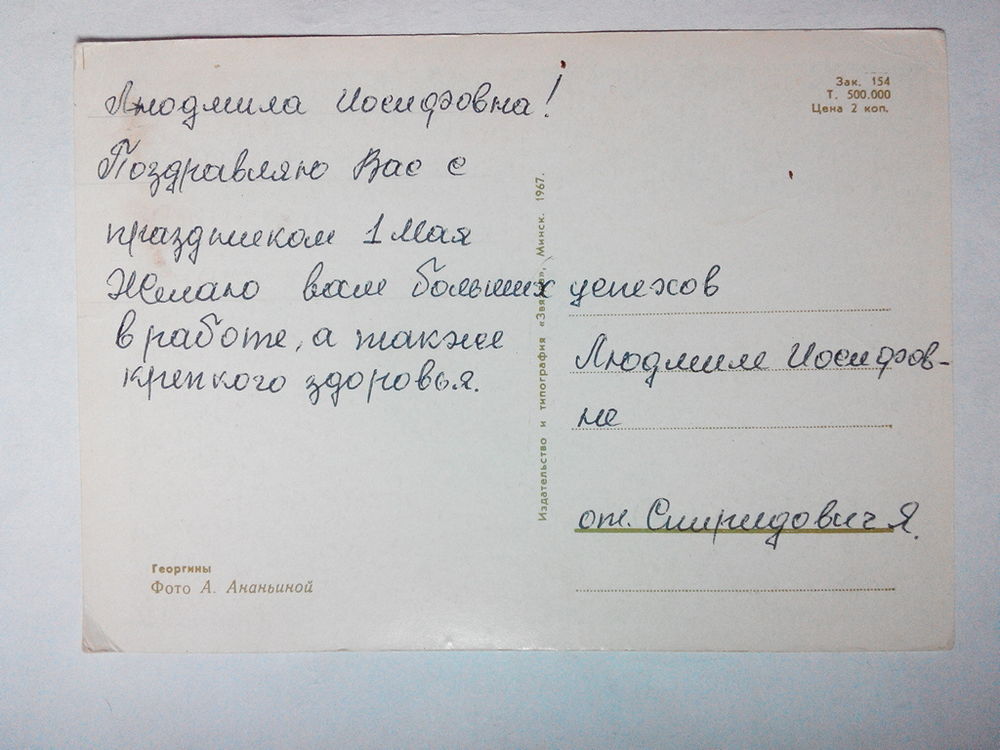 Людмила Иосифовна!
Поздравляю Вас с
праздником 1 Мая
Желаю вам больших успехов
в работе, а также
крепкого здоровья.
Георгины
Фото А. Ананьиной
Издательство и типография «Звязда», Минск. 1967.
Зак. 154
Т. 500.000
Цена 2 коп.
Людмиле Иосифов-
не
от. Спиридович Я.